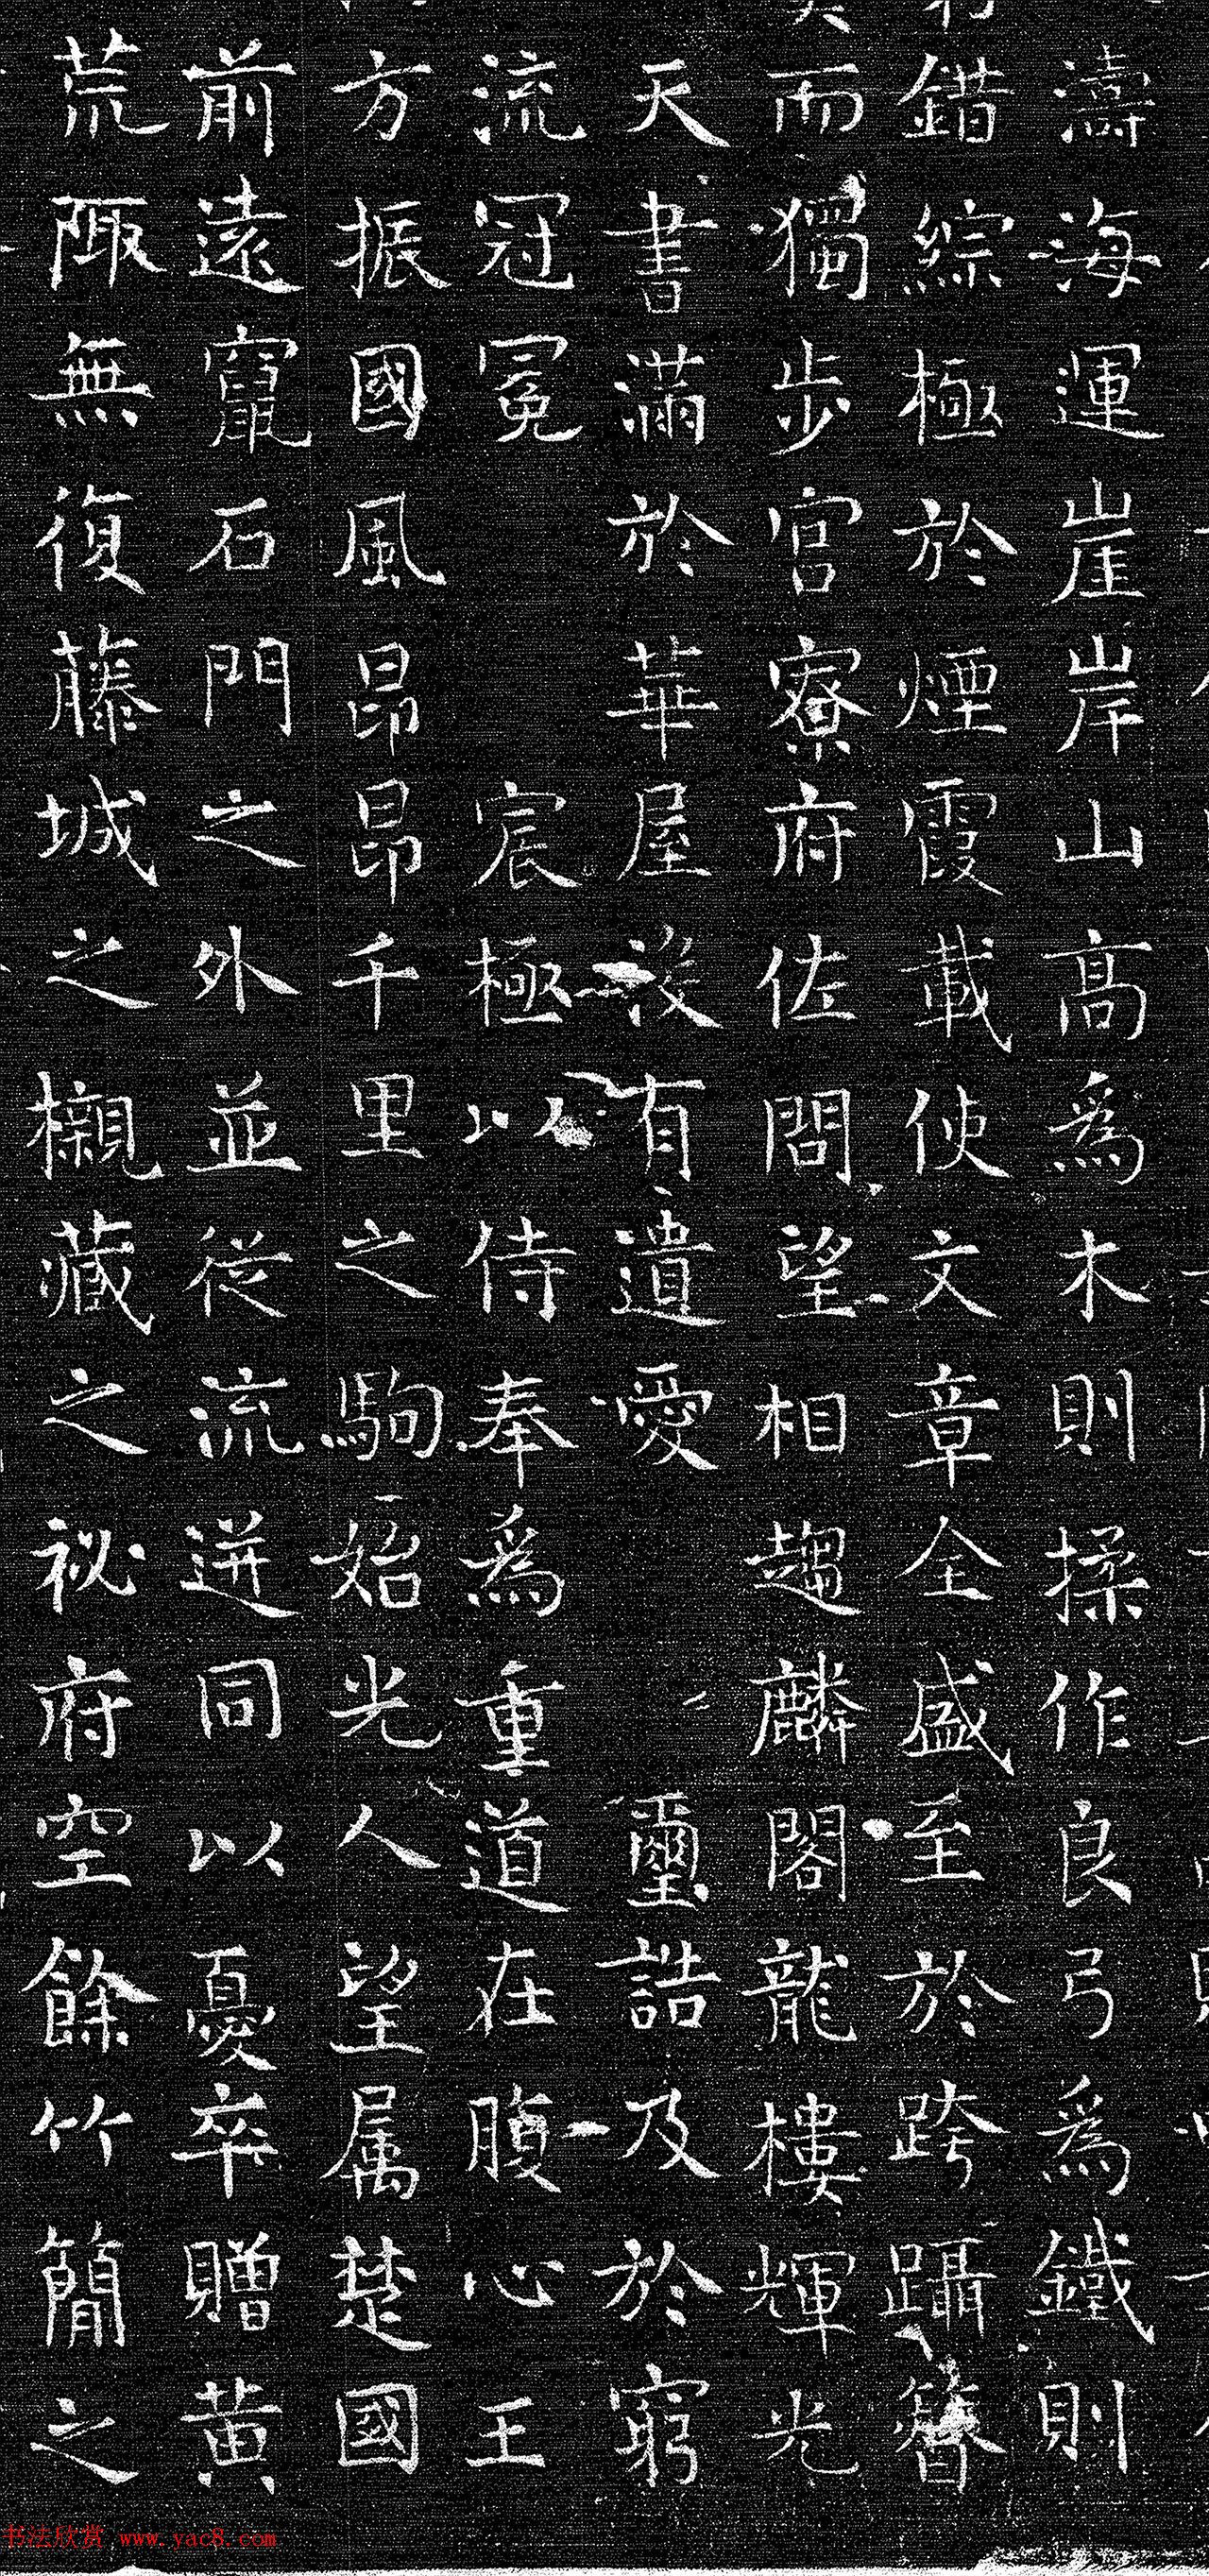 濤海運崖岸山高為木則操作良弓為鐵則
錯綜極於煙霞載使文章全盛至於跨躡簪
而獨步官寮府佐閤望相趨麟閣龍樓輝光
天書滿於華屋沒有遺愛璽誥及於窮
流冠冕宸極以侍奉為重道在腹心王
方振國風昂昂千里之駒始光人望属楚國
前遠竄石門之外並從流迸同以憂卒贈黃
荒陬無復藤城之櫬藏之祕府空餘竹簡之
书法欣赏 www.yac8.com